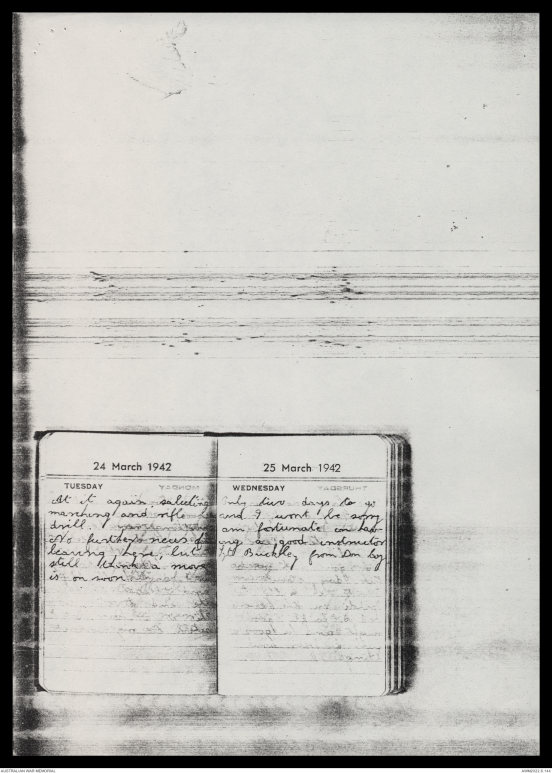 24 March 1942
TUESDAY
At it again saluting
marching and rifle
drill.
No further news of
leaving here, but
still think a move
is on soon
25 March 1942
WEDNESDAY
Only two days to go
and I wont be sorry
am fortunate in hav-
ing a good instructor
Buckley from Don Coy
AUSTRALIAN WAR MEMORIAL